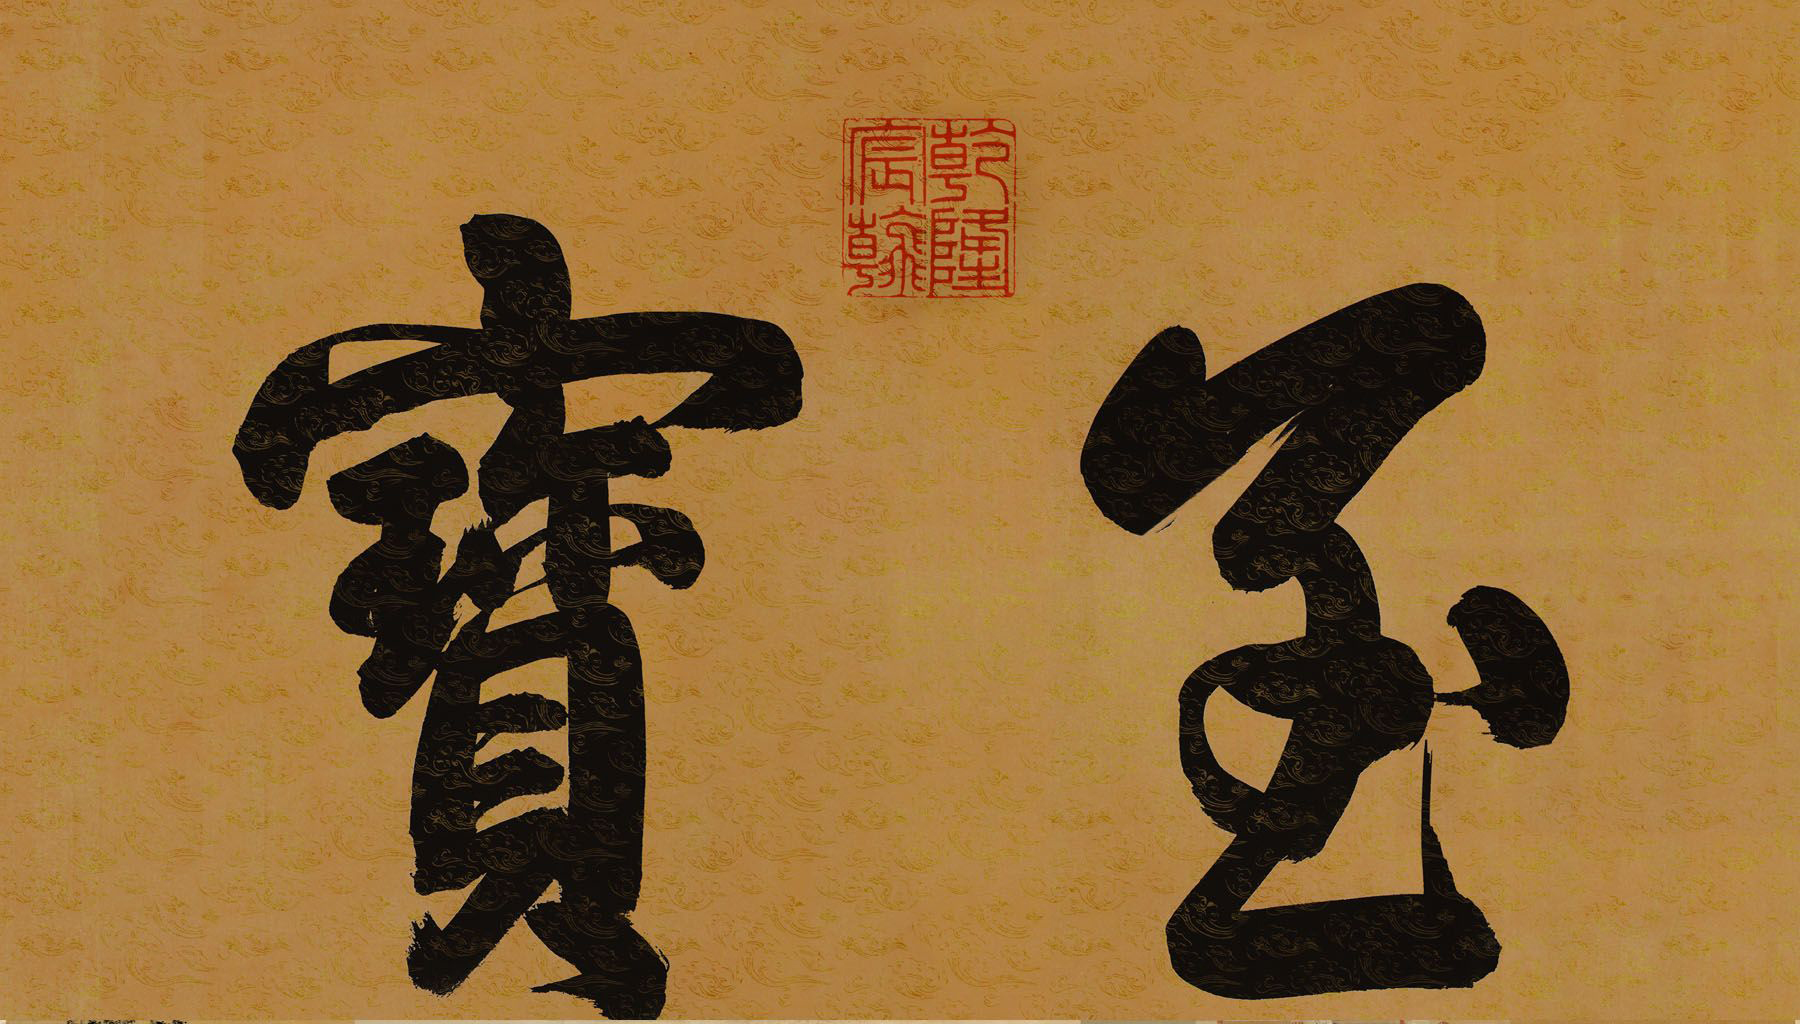 乾隆宸翰
至寶